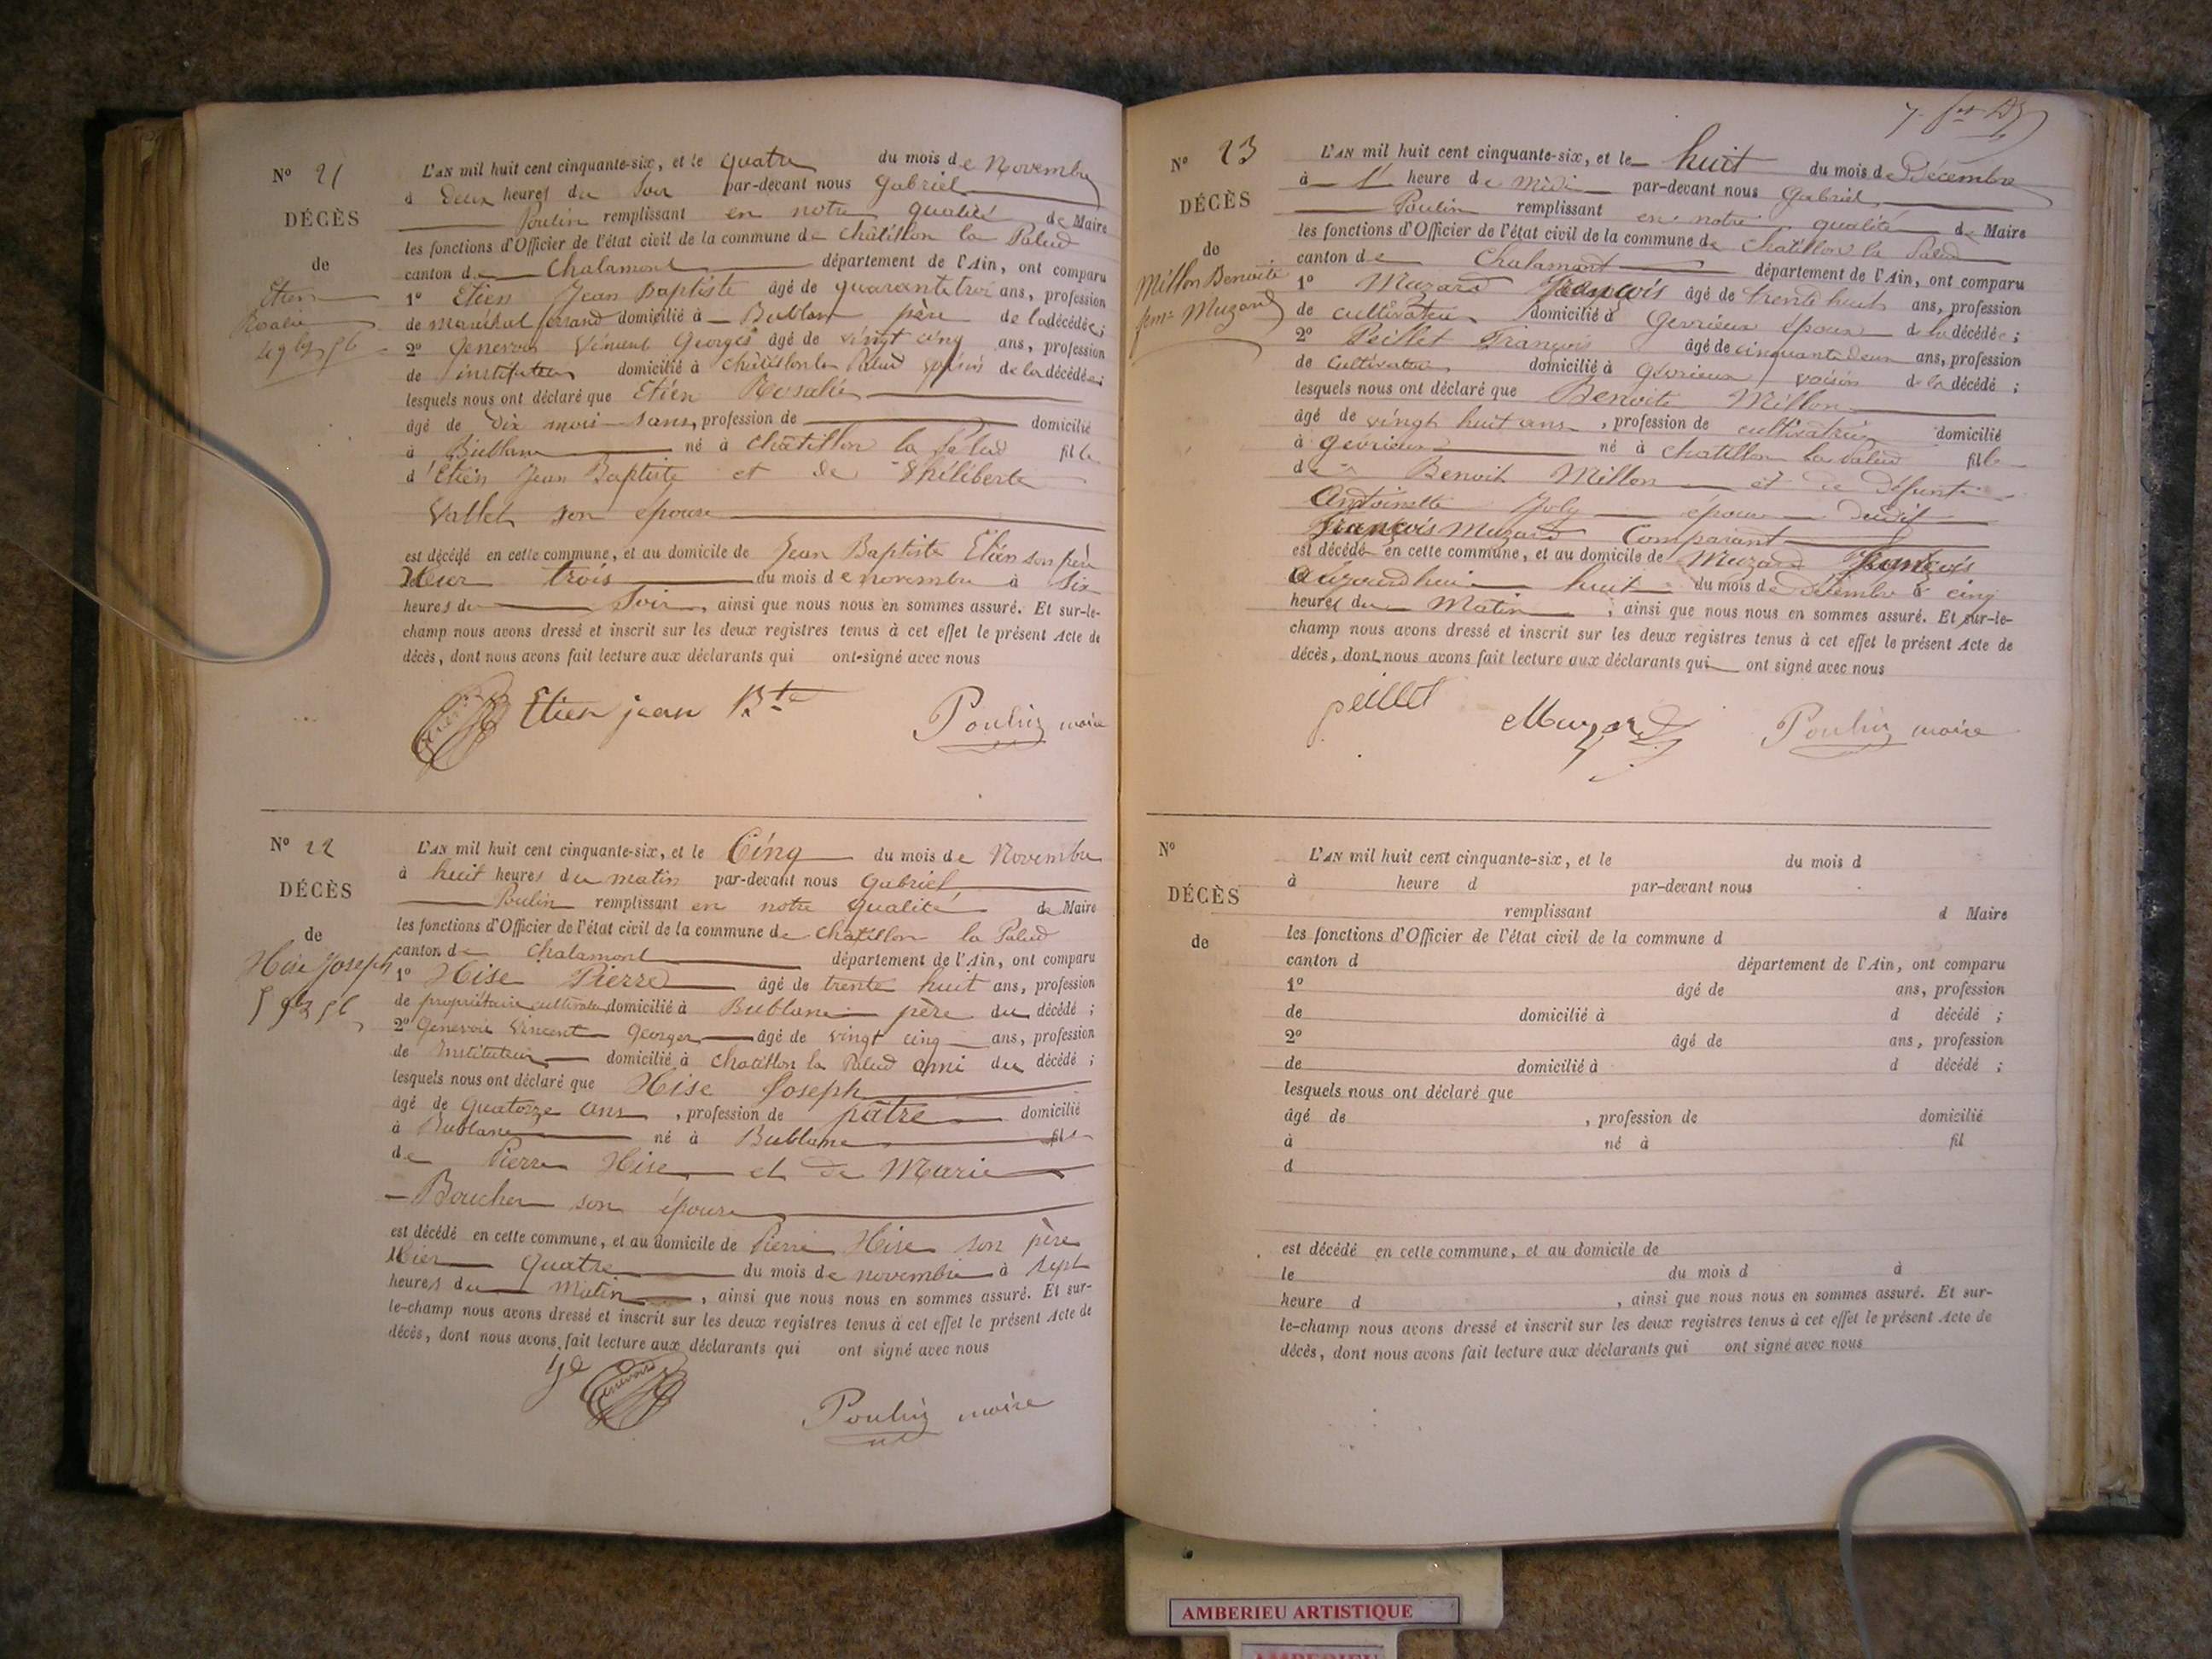 N° 21
DÉCÈS
de
Etien
Rosalie
L'AN mil huit cent cinquante-six, et le quatre du mois de Novembre
à deux heures du Soir par-devant nous Gabriel
Poulin remplissant en notre qualité de Maire
les fonctions d'Officier de l'état civil de la commune de Châtillon la Palud
canton de Chalamont département de l'Ain, ont comparu
1° Etien Jean Baptiste âgé de quarante trois ans, profession
de maréchal ferrand domicilié à Bublane père de la décédée ;
2° Genevois Vincent Georges âgé de vingt cinq ans, profession
de instituteur domicilié à Châtillon la Palud voisin de la décédée ;
lesquels nous ont déclaré que Etién Rosalie
âgé de dix mois sans, profession de domicilié
à Bublane né à Châtillon la Palud fille
d'Etién Jean Baptiste et de Philiberte
Vallet son épouse
est décédé en cette commune, et au domicile de Jean Baptiste Etién son père
Hier trois du mois de novembre à Six
heures du Soir, ainsi que nous nous en sommes assuré. Et sur-le-
champ nous avons dressé et inscrit sur les deux registres tenus à cet effet le présent Acte de
décès, dont nous avons fait lecture aux déclarants qui ont signé avec nous
Etien jean Bte Poulin maire
N° 22
DÉCÈS
de
Hise Joseph
L'AN mil huit cent cinquante-six, et le Cinq du mois de Novembre
à huit heures du matin par-devant nous Gabriel
Poulin remplissant en notre qualité de Maire
les fonctions d'Officier de l'état civil de la commune de Chatillon la Palud
canton de Chalamont département de l'Ain, ont comparu
1° Hise Pierre âgé de trente huit ans, profession
de propriétaire cultivateur domicilié à Bublane père du décédé ;
2° Genevois Vincent Georges âgé de vingt cinq ans, profession
de Instituteur domicilié à Chatillon la Palud ami du décédé ;
lesquels nous ont déclaré que Hise Joseph
âgé de Quatorze ans, profession de pâtre domicilié
à Bublane né à Bublane fils
de Pierre Hise et de Marie
Boucher son épouse
est décédé en cette commune, et au domicile de Pierre Hise son père
Hier Quatre du mois de novembre à sept
heures du Matin, ainsi que nous nous en sommes assuré. Et sur-
le-champ nous avons dressé et inscrit sur les deux registres tenus à cet effet le présent Acte de
décès, dont nous avons fait lecture aux déclarants qui ont signé avec nous
Poulin maire
N° 23
DÉCÈS
de
Millon Benoite
femme Muzard
L'AN mil huit cent cinquante-six, et le huit du mois de Décembre
à 1 heure de Midi par-devant nous Gabriel
Poulin remplissant en notre qualité de Maire
les fonctions d'Officier de l'état civil de la commune de Chatillon la Palud
canton de Chalamont département de l'Ain, ont comparu
1° Muzard François âgé de trente huit ans, profession
de cultivateur domicilié à Gevrieux époux de la décédée ;
2° Peillet François âgé de cinquante deux ans, profession
de Cultivateur domicilié à Gévrieux voisin de la décédé ;
lesquels nous ont déclaré que Benoite Millon
âgé de vingt huit ans, profession de cultivatrice domicilié
à Gévrieux né à Chatillon la Palud fille
de Benoit Millon et de défunte
Antoinette Joly épouse dudit
François Muzard Comparant
est décédé en cette commune, et au domicile de Muzard François
Aujourdhui huit du mois de Décembre à cinq
heures du Matin, ainsi que nous nous en sommes assuré. Et sur-le-
champ nous avons dressé et inscrit sur les deux registres tenus à cet effet le présent Acte de
décès, dont nous avons fait lecture aux déclarants qui ont signé avec nous
peillet Muzard Poulin maire
N°
DÉCÈS
de
L'AN mil huit cent cinquante-six, et le du mois d
à heure d par-devant nous
remplissant d Maire
les fonctions d'Officier de l'état civil de la commune d
canton d département de l'Ain, ont comparu
1° âgé de ans, profession
de domicilié à d décédé ;
2° âgé de ans, profession
de domicilié à d décédé ;
lesquels nous ont déclaré que
âgé de , profession de domicilié
à né à fil
d
est décédé en cette commune, et au domicile de
le du mois d à
heure d , ainsi que nous nous en sommes assuré. Et sur-
le-champ nous avons dressé et inscrit sur les deux registres tenus à cet effet le présent Acte de
décès, dont nous avons fait lecture aux déclarants qui ont signé avec nous
AMBERIEU ARTISTIQUE
AMBERIEU